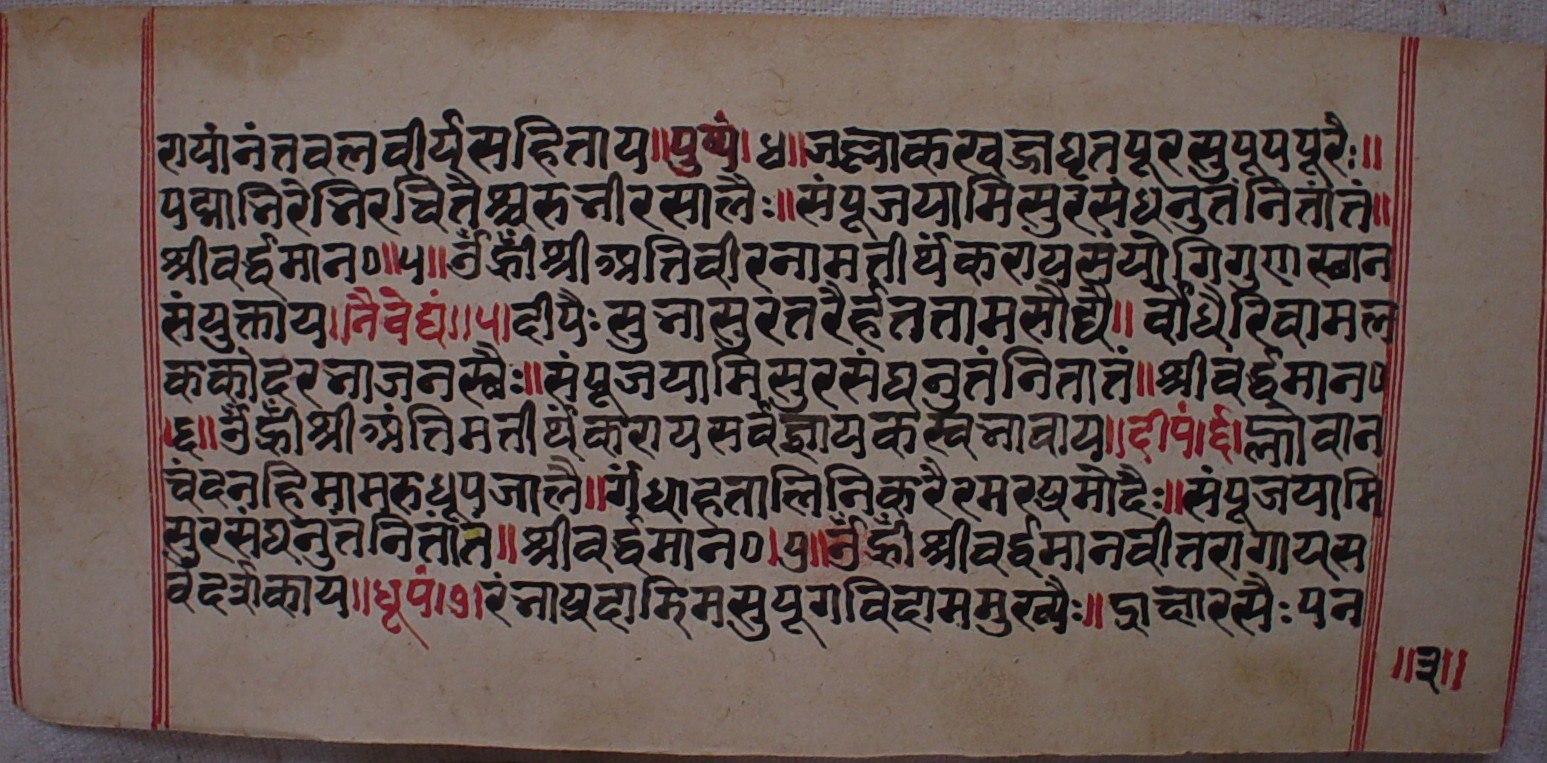 रायांनंत्तवलवीर्यसहिताय॥पुष्पं।४॥जल्लाकखज्जाघृतपूरसुपूपपूरैः॥
पद्मानिरेत्तिरचितैश्चरुत्तीरसालैः॥संपूजयामिसुरसंघनुतंनितांतं॥
श्रीवर्द्धमान०॥५॥ॐह्रीँश्रीअत्तिवीरनामत्तीर्थंकरायसयोगिगुणस्थान
संयुक्ताय।नैवेद्यं॥५।दीपैःसुत्तासुरतरैर्हतत्तामसौघै॥र्वोधैरिवामल
कर्कोदरत्ताजनस्थैः॥संपूजयामिसुरसंघनुतंनितातं॥श्रीवर्द्धमान०
।६॥ॐह्रीँश्रीअंत्तिमत्तीर्थंकरायसर्वज्ञायकस्वत्तावाय॥दीपं।६।
चंदनहिमामरुधूपजालै॥र्गंधाहतालिनिकरैरमरप्रमोदैः॥संपूजयामि
सुरसंघनुतंनितांत॥श्रीवर्द्धमान०।७॥ॐह्रीँश्रीवर्द्धमानवीत्तरागायस
र्वदर्शकाय॥धूपं।७।रंत्ताप्रदाडिमसुपूगविदाममुख्यैः॥पन
॥३॥